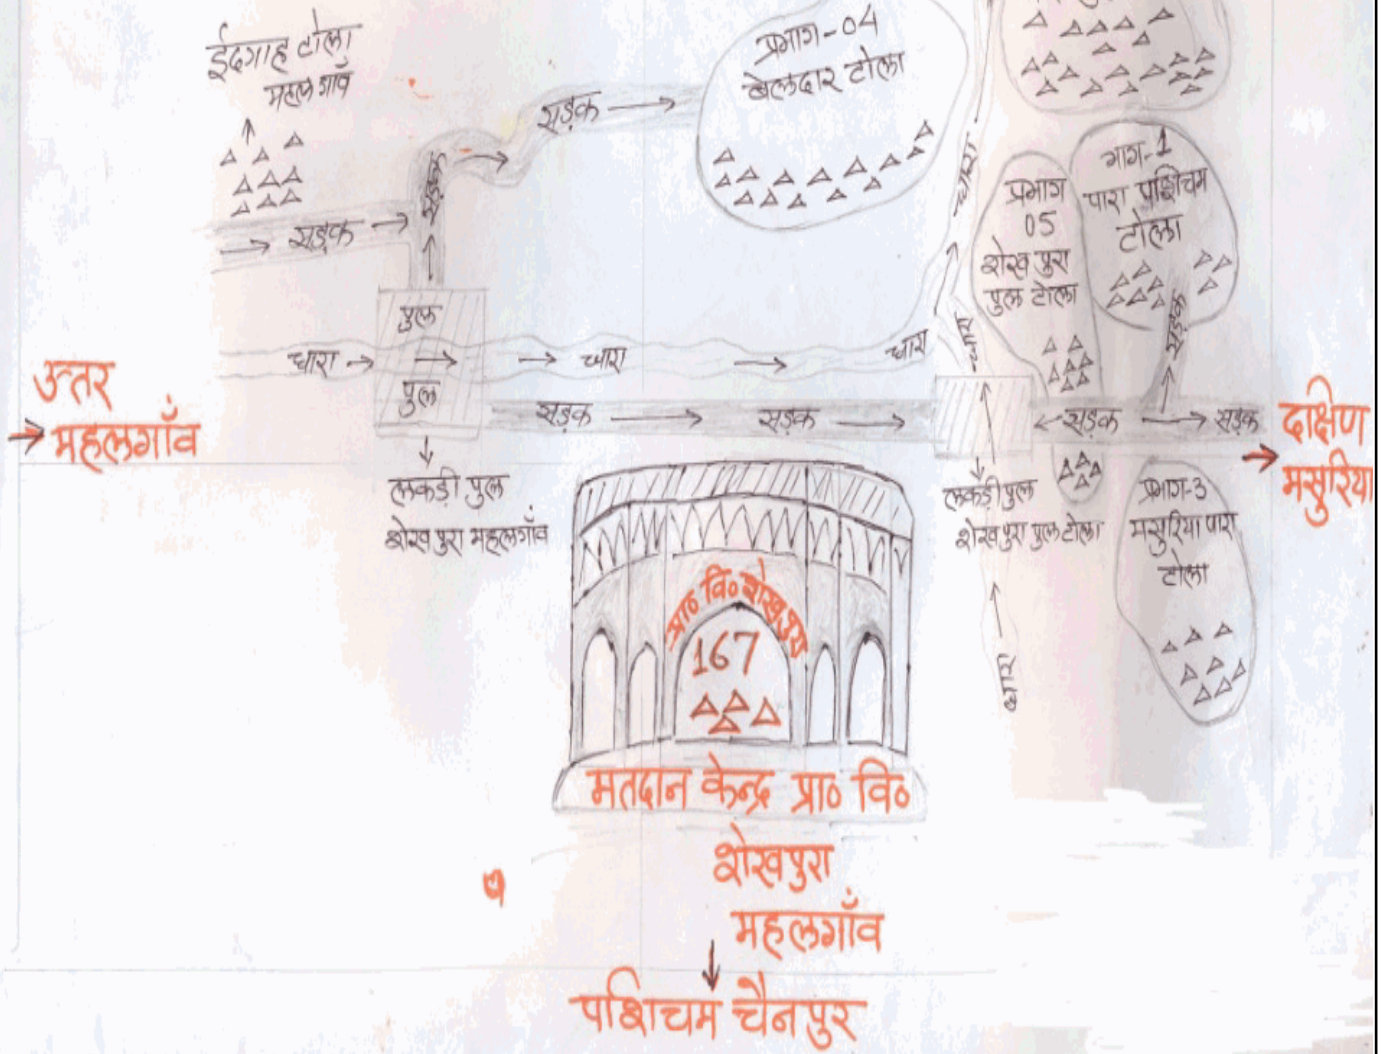 ईदगाह टोला
महलगाँव
प्रभाग-04
बेलदार टोला
सड़क
सड़क
सड़क
धारा
भाग-1
पारा पश्चिम
टोला
प्रभाग
05
शेखपुरा
पुल टोला
सड़क
पुल
धारा
धारा
धारा
धारा
पुल
उत्तर
महलगाँव
सड़क
सड़क
सड़क
सड़क
दक्षिण
मसुरिया
लकड़ी पुल
शेखपुरा महलगाँव
लकड़ी पुल
शेखपुरा पुल टोला
प्रभाग-3
मसुरिया पारा
टोला
प्रा० वि० शेखपुरा
167
धारा
मतदान केन्द्र प्रा० वि०
शेखपुरा
महलगाँव
पश्चिम चैनपुर